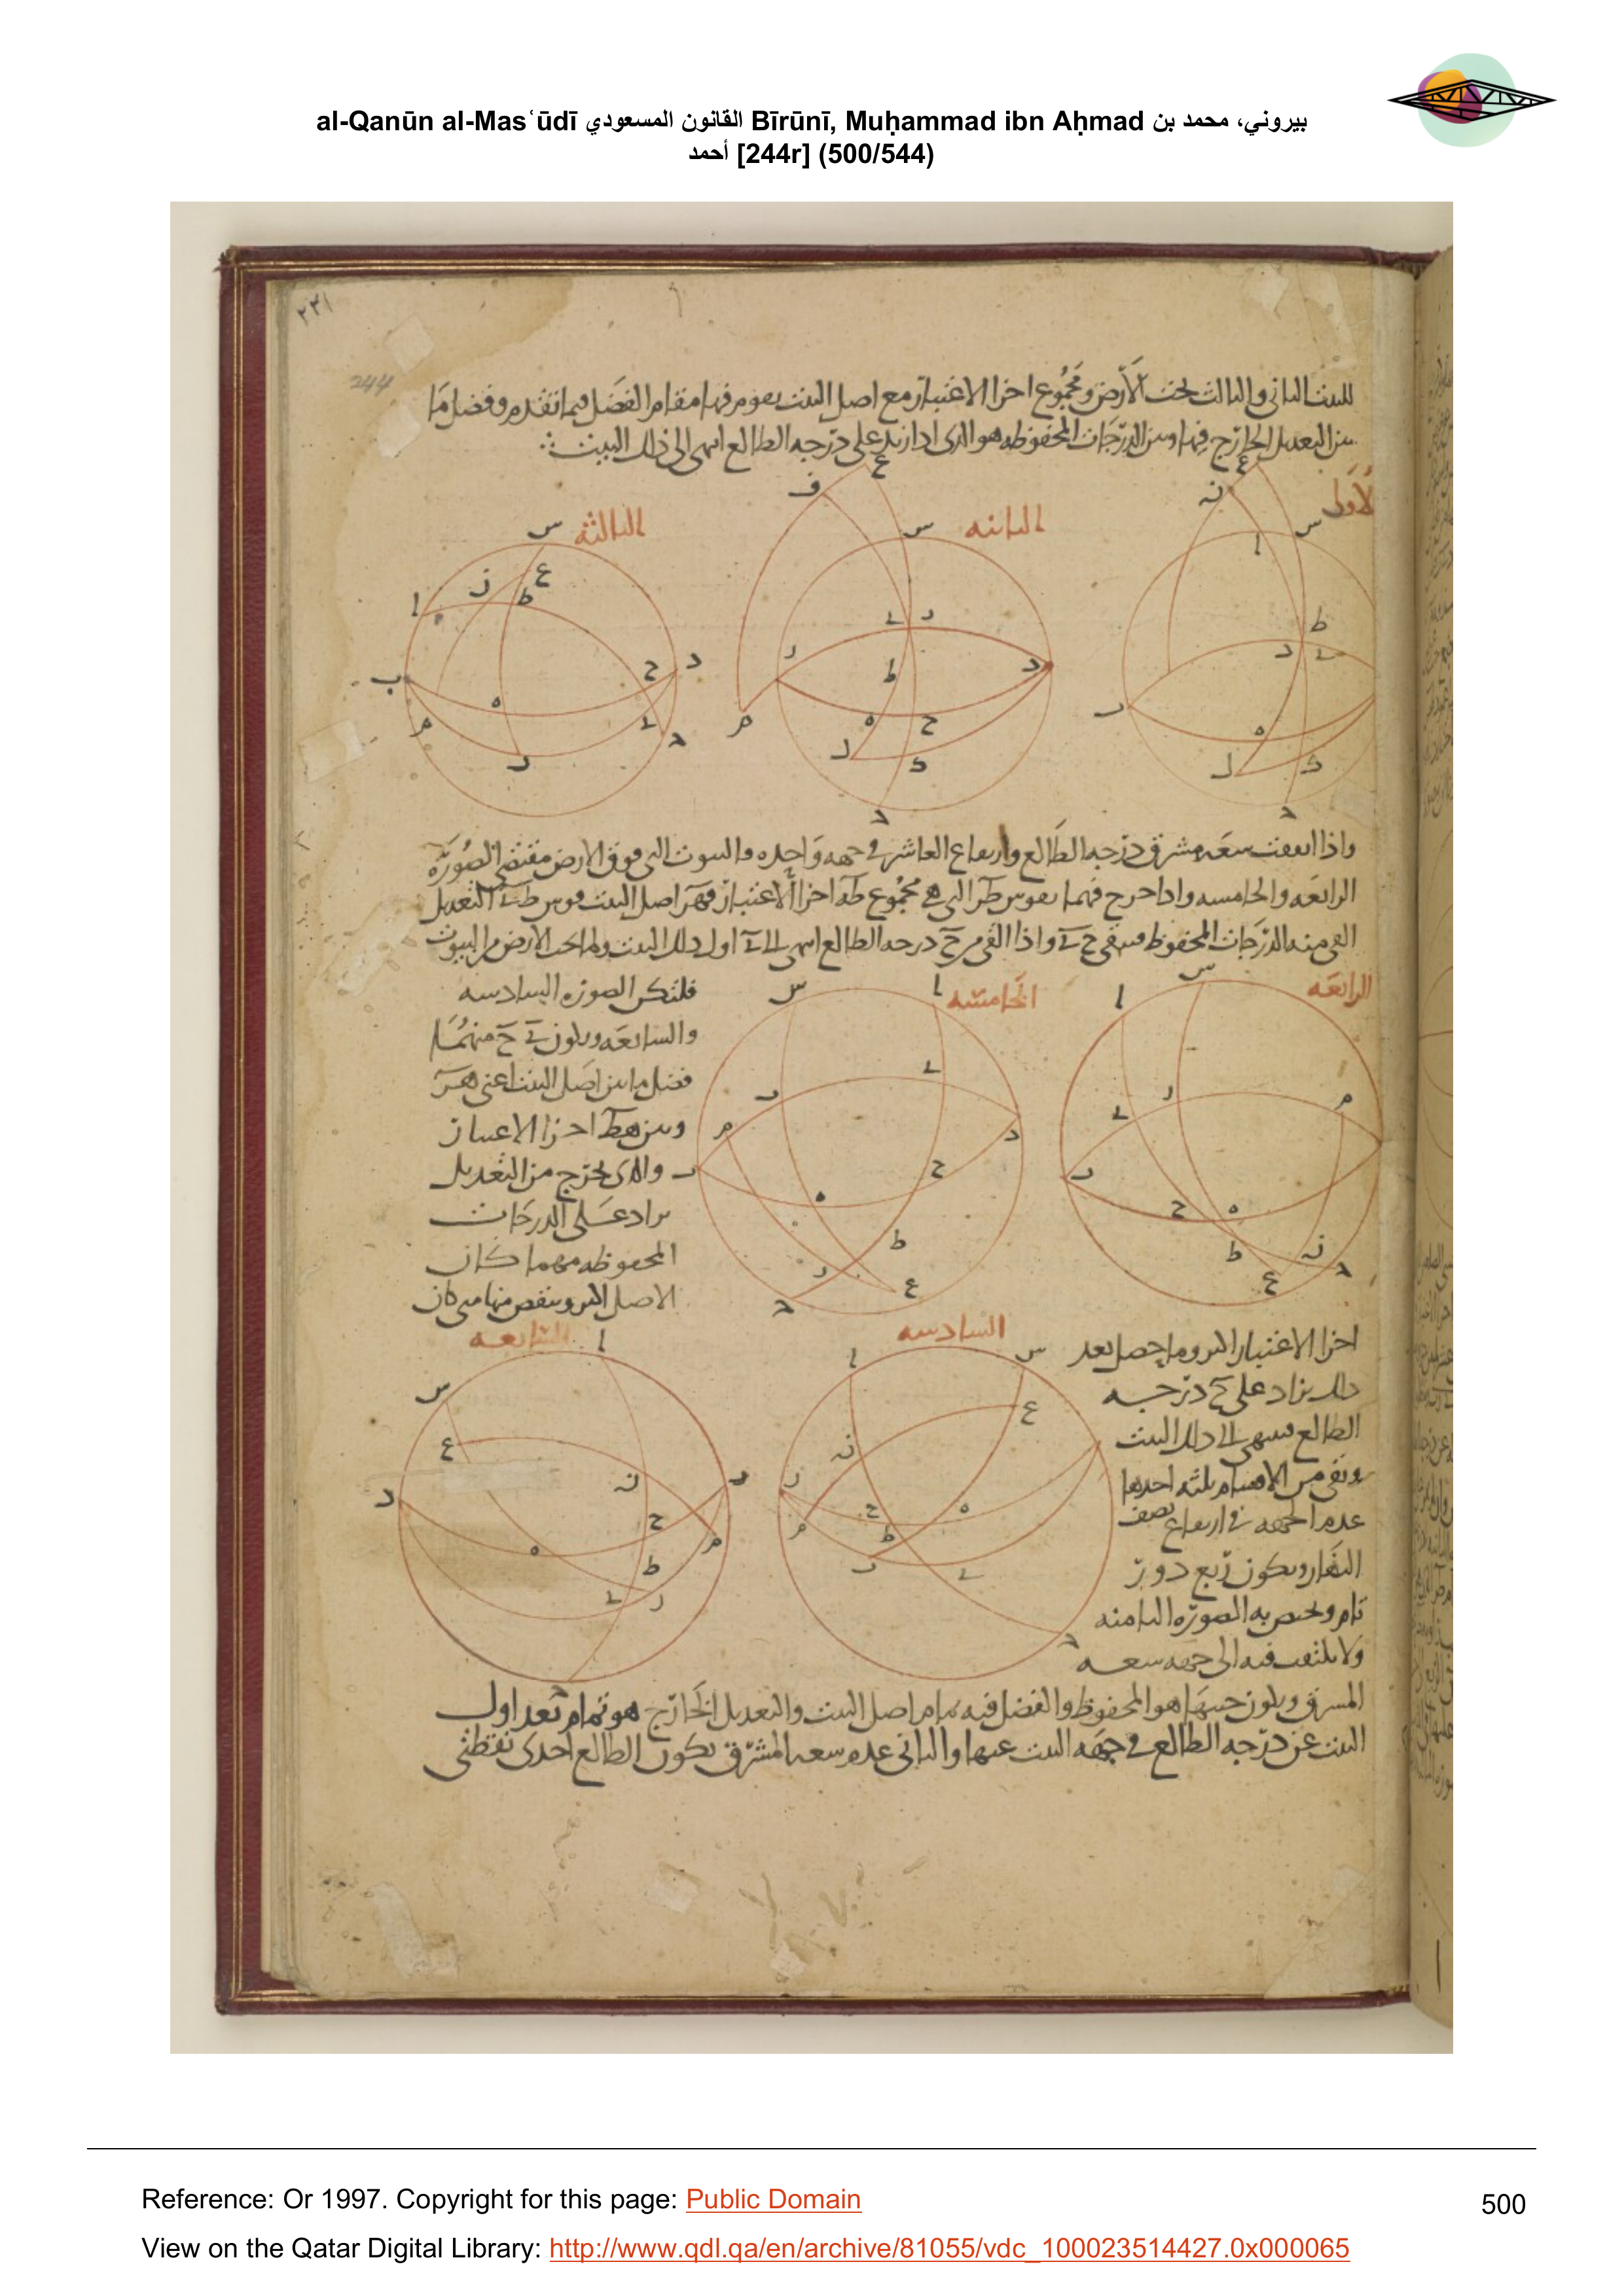 al-Qanūn al-Masʿūdī القانون المسعودي Bīrūnī, Muḥammad ibn Aḥmad بيروني، محمد بن
أحمد [244r] (500/544)
٢٣١
244
للبيت الثانى والثالث تحت الأرض ومجموع اجزا الاعتبار مع اصل البيت يقوم فيها مقام الفضل فيما تقدم وفضل ما
بين التعديل الخارج فيها وبين الدرجات المحفوظه هو الذى اذا زيد على درجه الطالع انتهى الى ذلك البيت
الأولى
الثانيه
الثالثه
واذا اتفقت سعه مشرق درجه الطالع وارتفاع العاشر فى جهه واحده فالبيوت التى فوق الارض مقتضى الصوره
الرابعه والخامسه واذا خرج فيهما بقوس طر التى هى مجموع طه اجزا الاعتبار وهر اصل البيت قوس التعديل
القى منه الدرجات المحفوظه فيبقى واذا القى من ح درجه الطالع انتهى الى اول ذلك البيت ولما تحت الارض من البيوت
الرابعه
الخامسه
فلتكن الصوره السادسه
والسابعه ويكون منهما
فضل ما بين اصل البيت اعنى هر
وبين هط اجزا الاعتبار
والذى يخرج من التعديل
يزاد على الدرجات
المحفوظه مهما كان
الاصل اكبر وينقص منها متى كان
السادسه
السابعه
اجزا الاعتبار اكبر وما حصل بعد
ذلك يزاد على ح درجه
الطالع فينتهى الى ذلك البيت
وبقى من الاقسام ثلثه احدها
عدم الجهه فى ارتفاع نصف
النهار ويكون ربع دور
تام ويختص به الصوره الثامنه
ولا يلتفت فيه الى جهه سعه
المشرق ويكون حينها هو المحفوظ والفضل فيه تمام اصل البيت والتعديل الخارج هو تمام بعد اول
البيت عن درجه الطالع فى جهه البيت عنها والثانى عدم سعه المشرق بكون الطالع احدى نقطتى
Reference: Or 1997. Copyright for this page: Public Domain
500
View on the Qatar Digital Library: http://www.qdl.qa/en/archive/81055/vdc_100023514427.0x000065